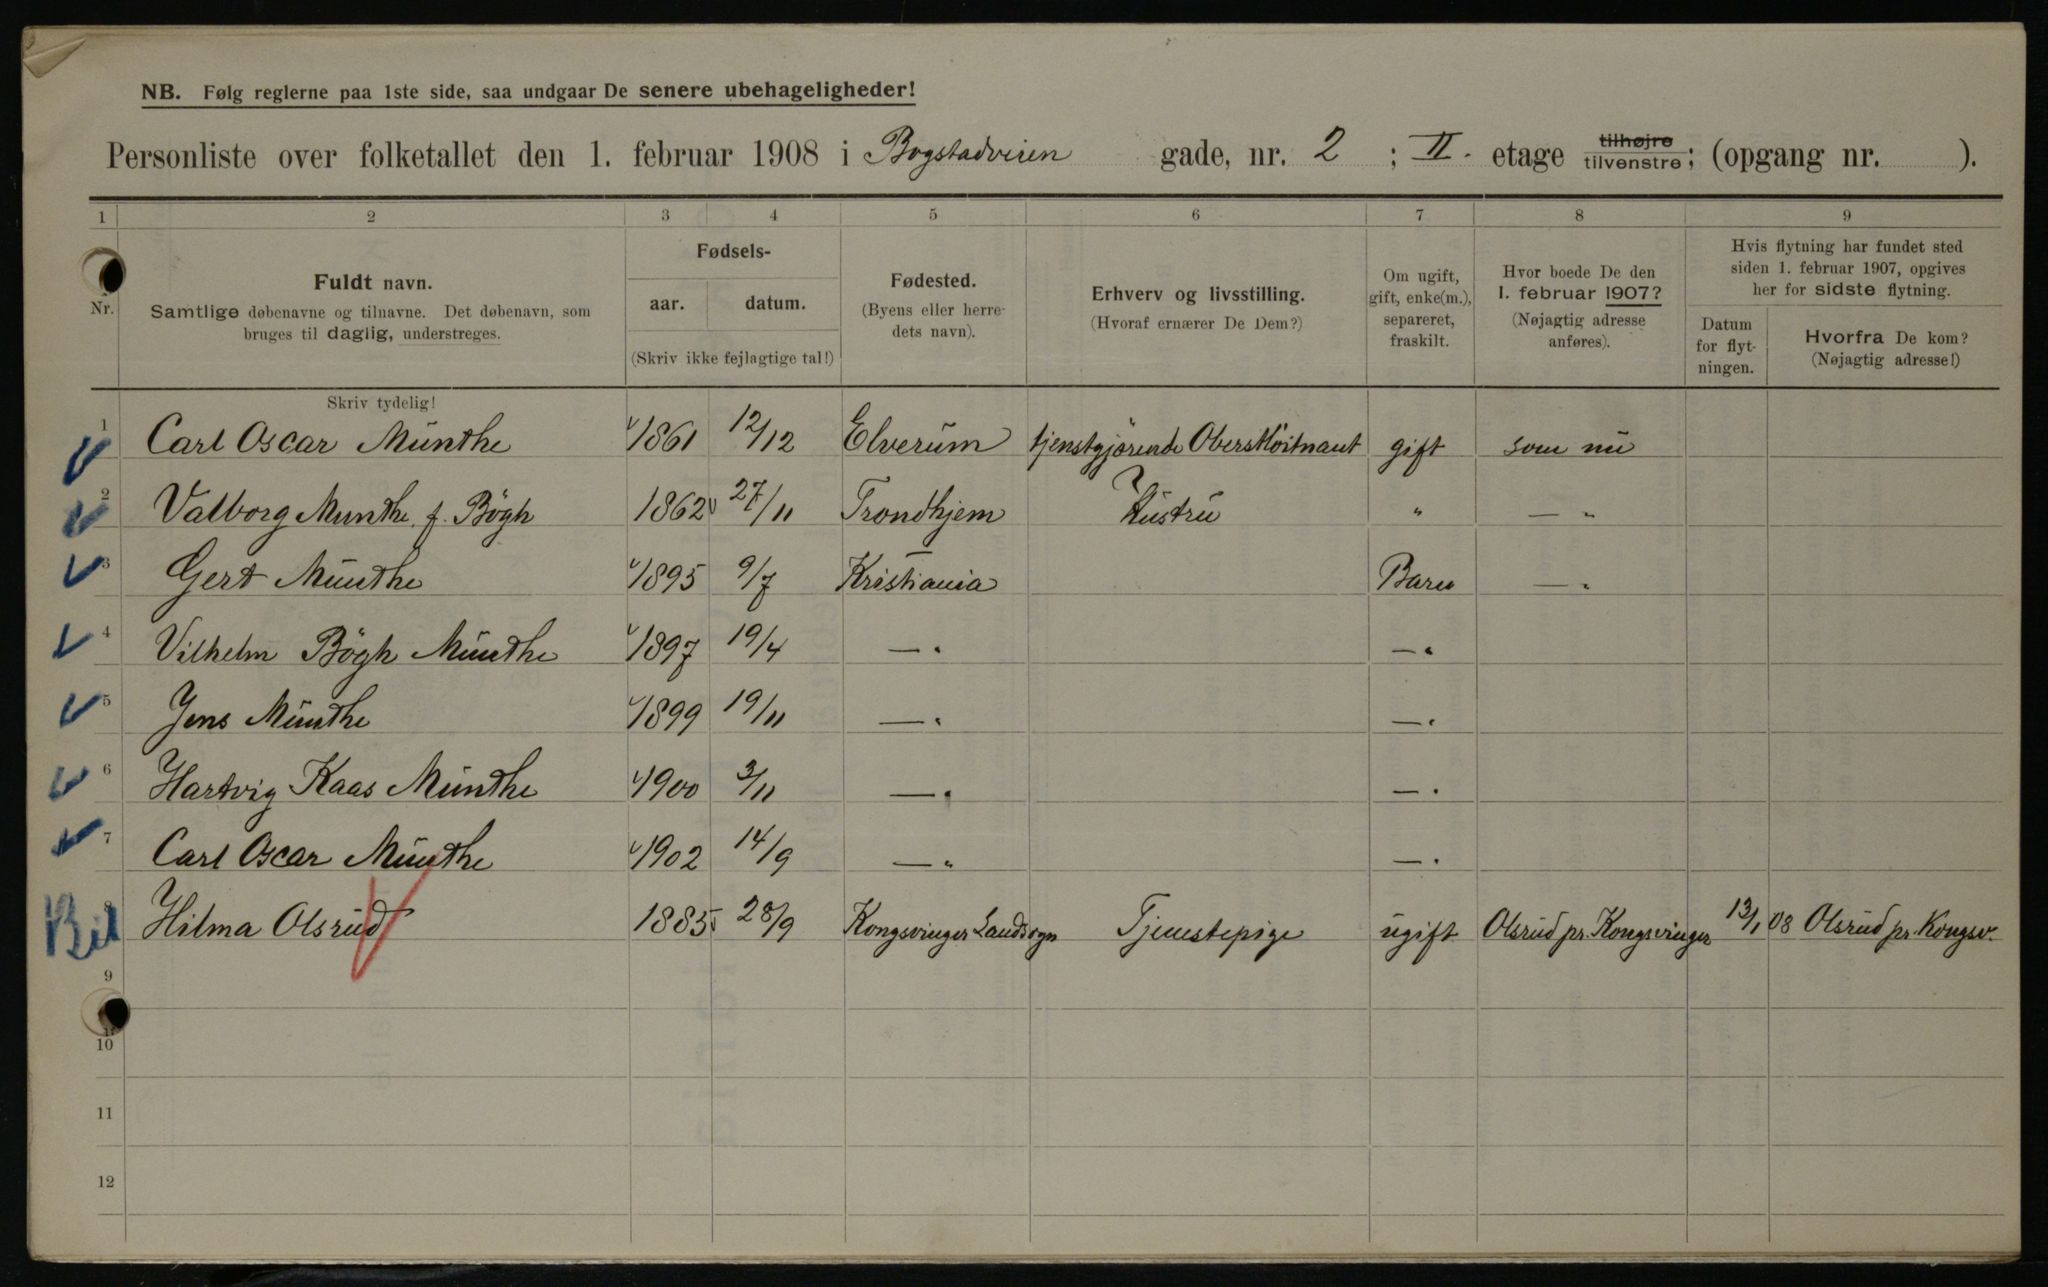 NB. Følg reglerne paa 1ste side, saa undgaar De senere ubehageligheder!
Personliste over folketallet den 1. februar 1908 i Bogstadveien gade, nr. 2 ; II. etage tilhøjre tilvenstre; (opgang nr. ).
1 2 3 4 5 6 7 8 9
Nr.
Fuldt navn.
Samtlige døbenavne og tilnavne. Det døbenavn, som
bruges til daglig, understreges.
Fødsels-
aar. datum.
(Skriv ikke fejlagtige tal!)
Fødested.
(Byens eller herre-
dets navn).
Erhverv og livsstilling.
(Hvoraf ernærer De Dem?)
Om ugift,
gift, enke(m.),
separeret,
fraskilt.
Hvor boede De den
1. februar 1907?
(Nøjagtig adresse
anføres).
Hvis flytning har fundet sted
siden 1. februar 1907, opgives
her for sidste flytning.
Datum
for flyt-
ningen.
Hvorfra De kom?
(Nøjagtig adresse!)
Skriv tydelig!
1 Carl Oscar Munthe 1861 12/12 Elverum tjenstgjørende Oberstløitnant gift som nu
2 Valborg Munthe f. Bögh 1862 27/11 Trondhjem Hustru " — "
3 Gert Munthe 1895 9/7 Kristiania Barn — "
4 Vilhelm Bögh Munthe 1897 19/4 — " — "
5 Jens Munthe 1899 19/11 — " — "
6 Hartvig Kaas Munthe 1900 3/11 — " — "
7 Carl Oscar Munthe 1902 14/9 — " — "
Bil 8 Hilma Olsrud 1885 28/9 Kongsvinger Landsogn Tjenestepige ugift Olsrud pr. Kongsvinger 13/1 08 Olsrud pr. Kongsv.
9
10
11
12